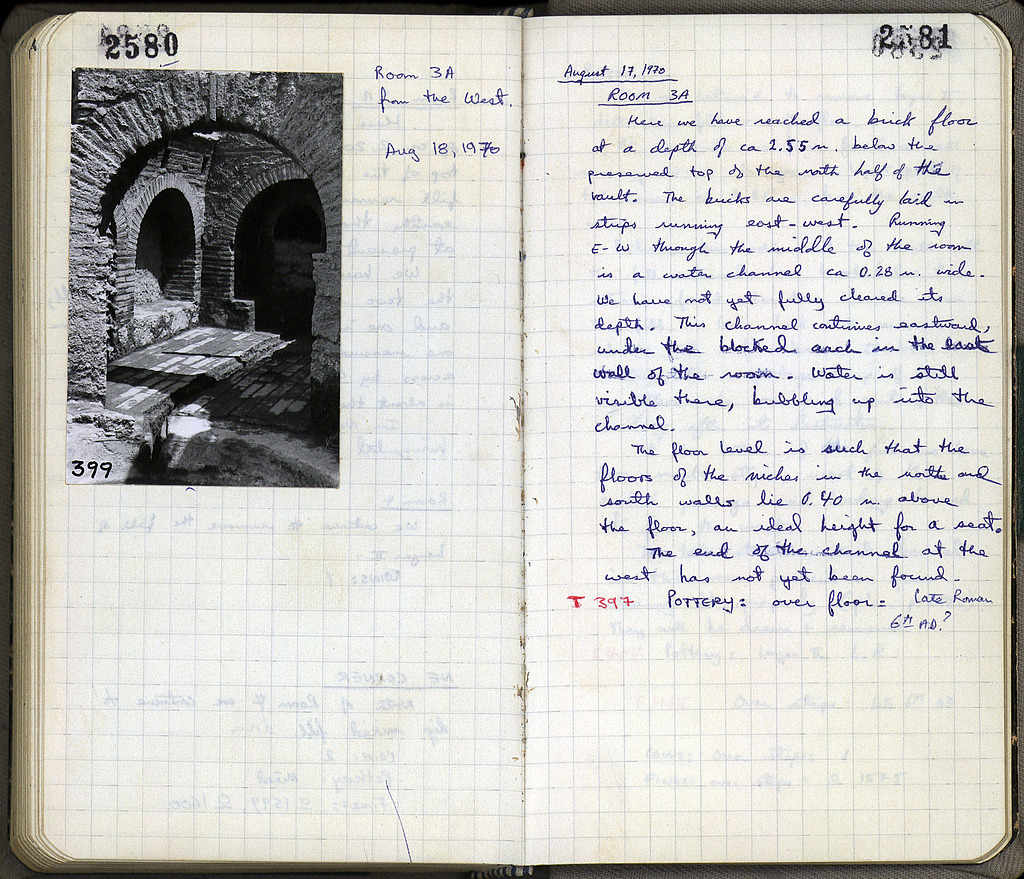 2580
Room 3A
from the West.
Aug 18, 1970
399
2581
August 17, 1970
ROOM 3A
Here we have reached a brick floor
at a depth of ca 2.55 m. below the
preserved top of the north half of the
vault. The bricks are carefully laid in
strips running east-west. Running
E-W through the middle of the room
is a water channel ca 0.28 m. wide.
We have not yet fully cleared its
depth. This channel continues eastward,
under the blocked arch in the east
wall of the room. Water is still
visible there, bubbling up into the
channel.
The floor level is such that the
floors of the niches in the north and
south walls lie 0.40 m. above
the floor, an ideal height for a seat.
The end of the channel at the
west has not yet been found.
T 397 POTTERY: over floor = Late Roman
6th AD?